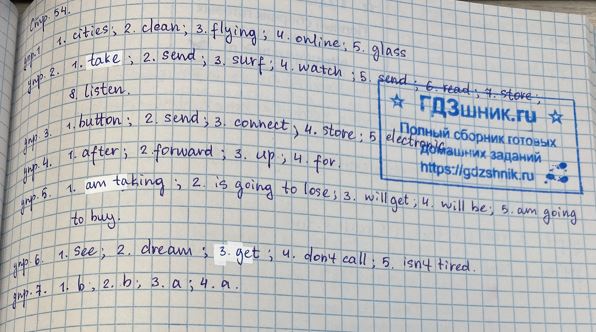 Стр. 54.
упр. 1 1. cities; 2. clean; 3. flying; 4. online; 5. glass
упр. 2. 1. take; 2. send; 3. surf; 4. watch; 5. send; 6. read; 7. store;
8. listen.
упр. 3. 1. button; 2. send; 3. connect; 4. store; 5 electronic
упр. 4. 1. after; 2. forward; 3. up; 4. for.
упр. 5. 1. am taking; 2. is going to lose; 3. will get; 4. will be; 5. am going
to buy.
упр. 6. 1. see; 2. dream; 3. get; 4. don4 call; 5. isn4 tired.
упр. 7. 1. b; 2. b; 3. a; 4. a.
ГДЗшник.ru
Полный сборник готовых
домашних заданий
https://gdzshnik.ru